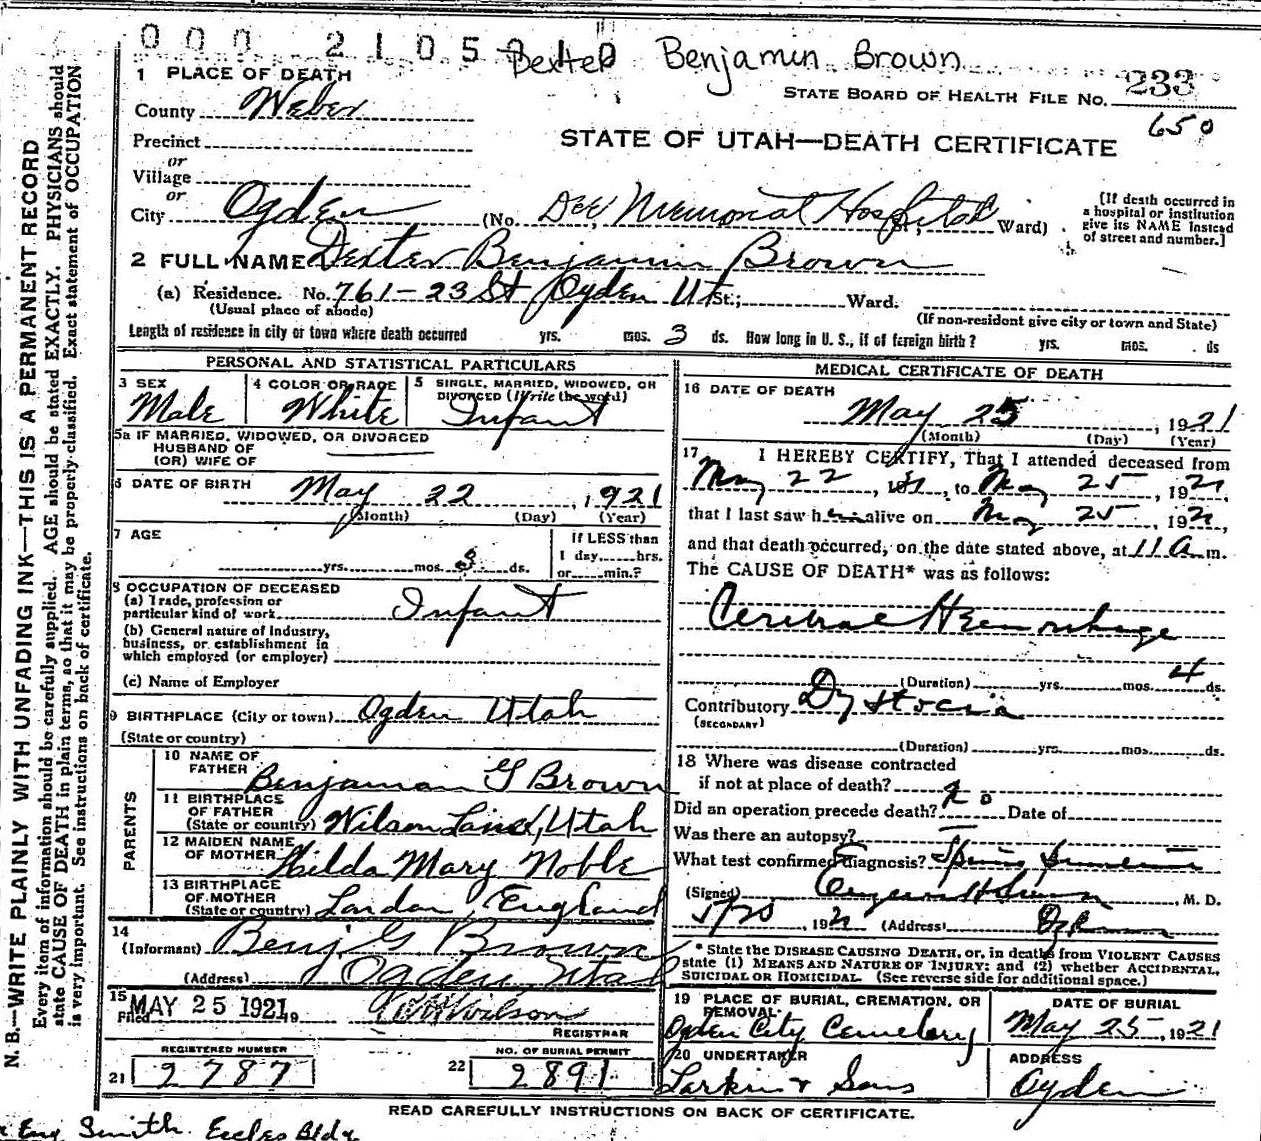 000 2105010 Dexter Benjamin Brown
STATE BOARD OF HEALTH FILE NO. 233
650
STATE OF UTAH—DEATH CERTIFICATE
1 PLACE OF DEATH
County Weber
Precinct
or
Village
or
City Ogden (No. Dee Memorial Hospital St.; Ward)
[If death occurred in
a hospital or institution
give its NAME instead
of street and number.]
2 FULL NAME Dexter Benjamin Brown
(a) Residence. No. 761-23 St Ogden Ut St.; Ward.
(Usual place of abode) (If non-resident give city or town and State)
Length of residence in city or town where death occurred yrs. mos. 3 ds. How long in U. S., if of foreign birth? yrs. mos. ds
PERSONAL AND STATISTICAL PARTICULARS
3 SEX Male
4 COLOR OR RACE White
5 SINGLE, MARRIED, WIDOWED, OR
DIVORCED (Write the word)
Infant
5a IF MARRIED, WIDOWED, OR DIVORCED
HUSBAND OF
(OR) WIFE OF
6 DATE OF BIRTH May 22, 1921
(Month) (Day) (Year)
7 AGE yrs. mos. 3 ds.
If LESS than
1 day hrs.
or min.?
8 OCCUPATION OF DECEASED
(a) Trade, profession or
particular kind of work Infant
(b) General nature of Industry,
business, or establishment in
which employed (or employer)
(c) Name of Employer
9 BIRTHPLACE (City or town) Ogden Utah
(State or country)
PARENTS
10 NAME OF
FATHER Benjaman G Brown
11 BIRTHPLACE
OF FATHER
(State or country) Wilson Lane, Utah
12 MAIDEN NAME
OF MOTHER Hilda Mary Noble
13 BIRTHPLACE
OF MOTHER
(State or country) London, England
14
(Informant) Benj G Brown
(Address) Ogden, Utah
15
Filed MAY 25 1921 19 Wilson
REGISTRAR
REGISTERED NUMBER
21 2787
NO. OF BURIAL PERMIT
22 2891
MEDICAL CERTIFICATE OF DEATH
16 DATE OF DEATH
May 25, 1921
(Month) (Day) (Year)
17 I HEREBY CERTIFY, That I attended deceased from
May 22, 1921, to May 25, 1921,
that I last saw him alive on May 25, 1921,
and that death occurred, on the date stated above, at 11 a m.
The CAUSE OF DEATH* was as follows:
Cerebral Hemorrhage
(Duration) yrs. mos. 4 ds.
Contributory Dystocia
(SECONDARY)
(Duration) yrs. mos. ds.
18 Where was disease contracted
if not at place of death?
Did an operation precede death? no Date of
Was there an autopsy?
What test confirmed diagnosis? Spine
(Signed) M. D.
1921 (Address) Ogden
* State the DISEASE CAUSING DEATH, or, in deaths from VIOLENT CAUSES
state (1) MEANS AND NATURE OF INJURY; and (2) whether ACCIDENTAL,
SUICIDAL OR HOMICIDAL. (See reverse side for additional space.)
19 PLACE OF BURIAL, CREMATION, OR
REMOVAL
Ogden City Cemetery
DATE OF BURIAL
May 25, 1921
20 UNDERTAKER
Larkin & Sons
ADDRESS
Ogden
READ CAREFULLY INSTRUCTIONS ON BACK OF CERTIFICATE.
Eug Smith Eccles Bldg
N. B.—WRITE PLAINLY WITH UNFADING INK—THIS IS A PERMANENT RECORD
Every item of information should be carefully supplied. AGE should be stated EXACTLY. PHYSICIANS should
state CAUSE OF DEATH in plain terms, so that it may be properly classified. Exact statement of OCCUPATION
is very important. See instructions on back of certificate.